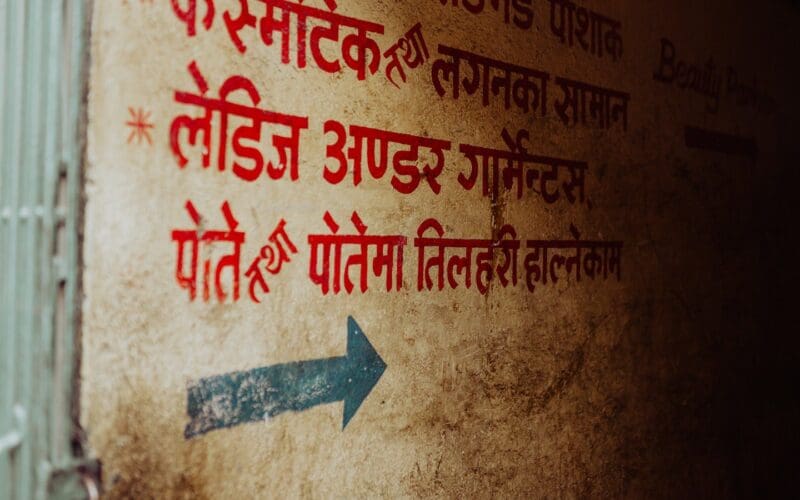 पोशाक
कस्मेटिक तथा लगनका सामान
* लेडिज अण्डर गार्मेन्टस्
पोते तथा पोतेमा तिलहरी हाल्नेकाम
Beauty